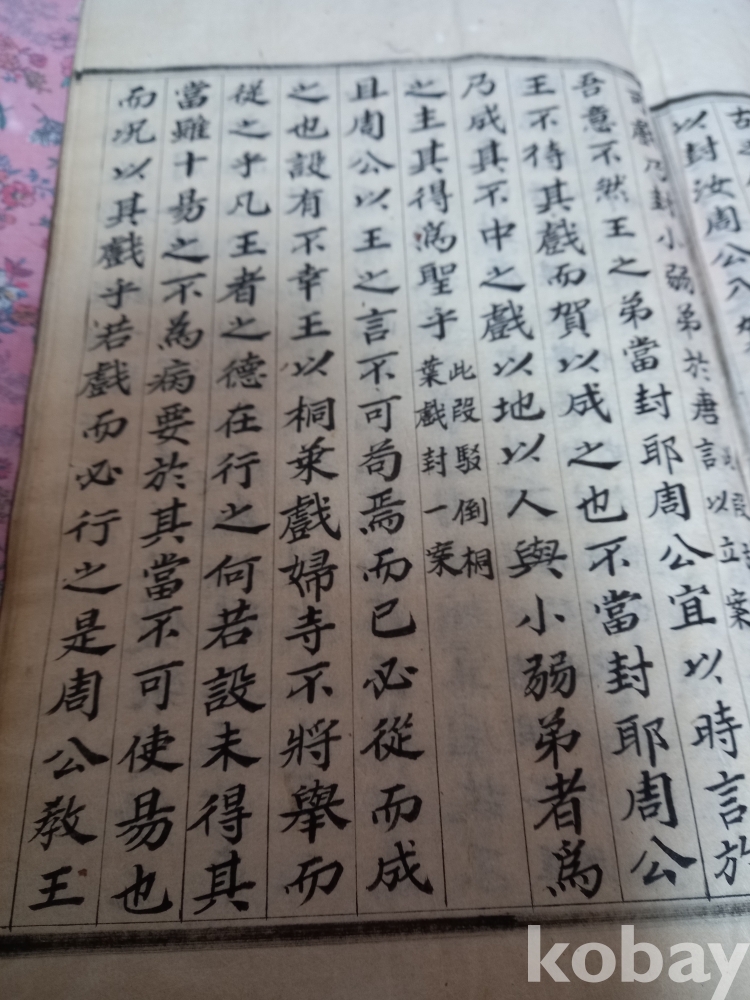 以封汝周公入
戲乃封小弱弟於唐
吾意不然王之弟當封耶周公宜以時言於
王不待其戲而賀以成之也不當封耶周公
乃成其不中之戲以地以人與小弱弟者為
之主其得為聖乎 此段駁倒桐
葉戲封一案
且周公以王之言不可苟焉而已必從而成
之也設有不幸王以桐葉戲婦寺不將舉而
從之乎凡王者之德在行之何若設未得其
當雖十易之不為病要於其當不可使易也
而况以其戲乎若戲而必行之是周公教王
kobay